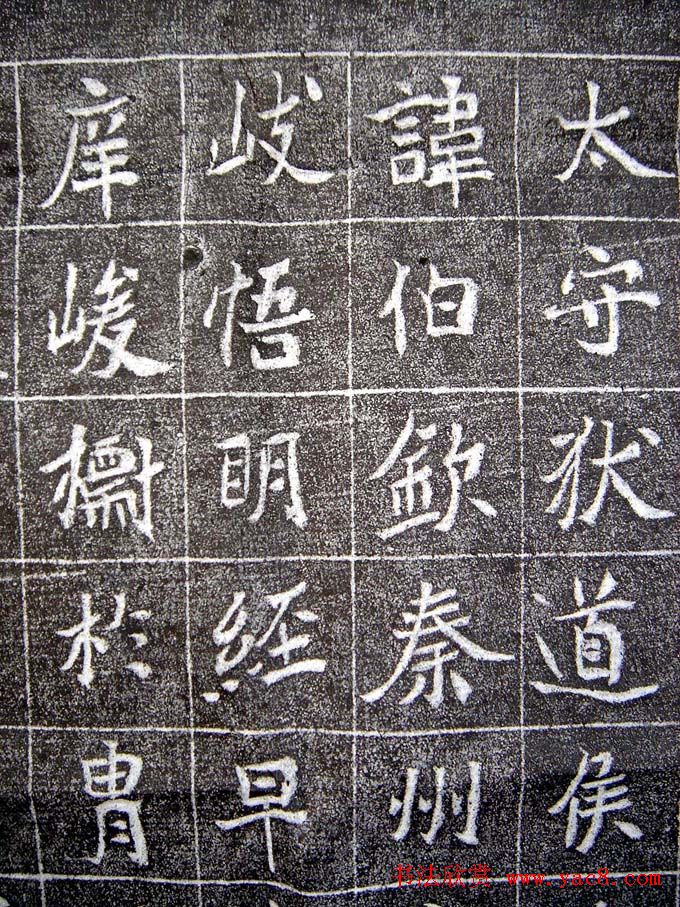 太守狄道侯
諱伯欽秦州
岐悟眀經早
庠峻於冑
书法欣赏 www.yac8.com